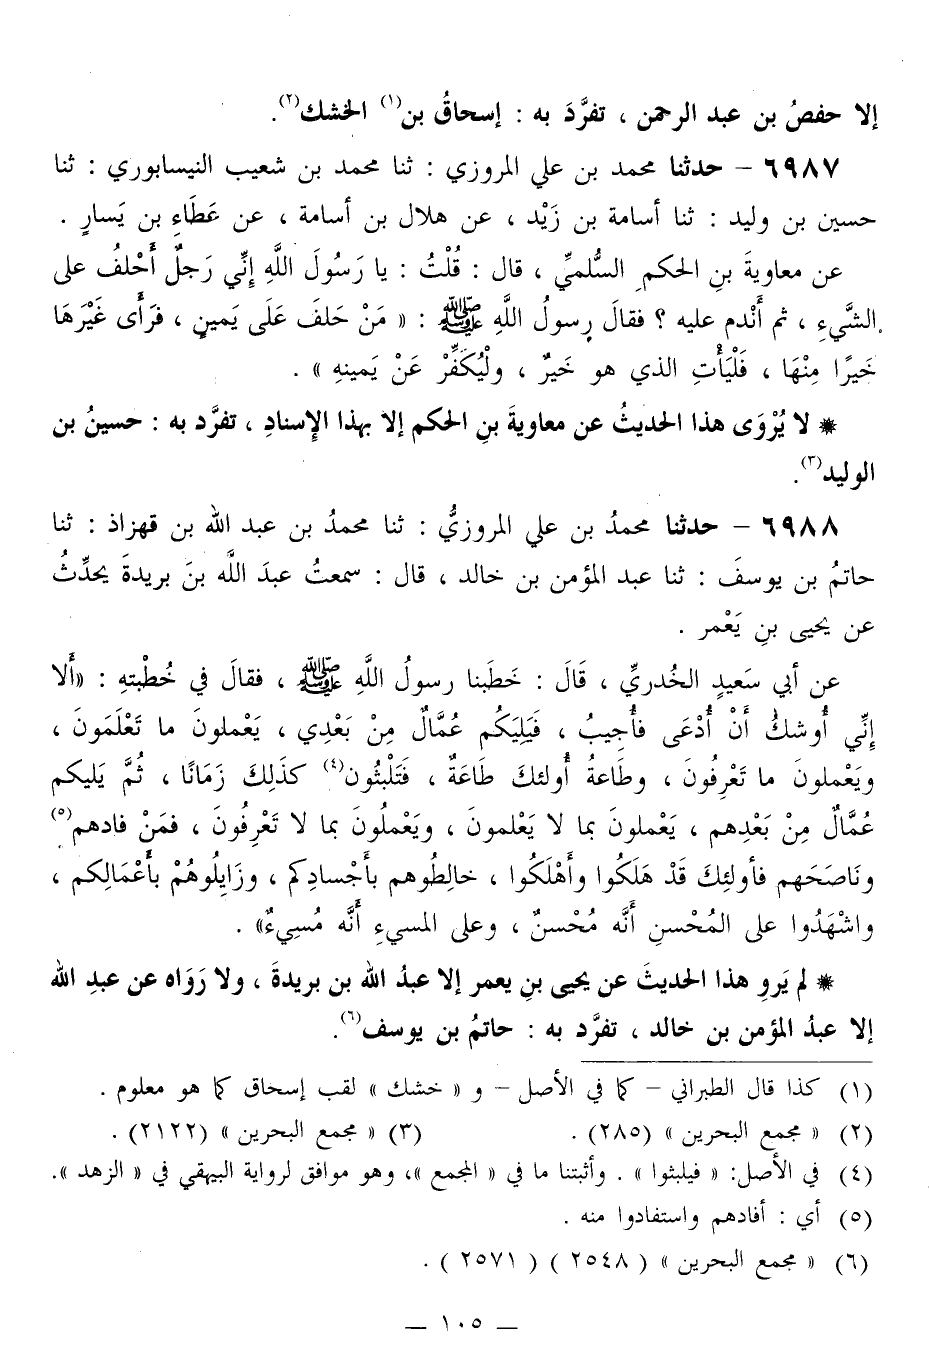 إلا حفصُ بن عبد الرحمن ، تفرَّدَ به : إسحاقُ بن(١) الخشك(٢).
٦٩٨٧ – حدثنا محمد بن علي المروزي : ثنا محمد بن شعيب النيسابوري : ثنا
حسين بن وليد : ثنا أسامة بن زَيْد ، عن هلال بن أسامة ، عن عَطَاءِ بن يَسارٍ .
عن معاويةَ بنِ الحكمِ السُّلميِّ ، قال : قُلْتُ : يا رَسُولَ اللَّهِ إنِّي رَجلٌ أَحْلفُ على
الشَّيءِ ، ثم أَنْدم عليه ؟ فقالَ رسولُ اللَّهِ ﷺ : « مَنْ حَلفَ عَلَى يَمينٍ ، فرَأى غَيْرَهَا
خَيرًا مِنْهَا ، فَلْيَأْتِ الذي هو خَيرٌ ، ولْيُكَفِّرْ عَنْ يَمينهِ » .
* لا يُرْوَى هذا الحديثُ عن معاويةَ بنِ الحكم إلا بهذا الإسنادِ ، تفرَّد به : حسينُ بن
الوليد(٣).
٦٩٨٨ – حدثنا محمدُ بن علي المروزيُّ : ثنا محمدُ بن عبد الله بن قهزاذ : ثنا
حاتمُ بن يوسفَ : ثنا عبد المؤمن بن خالد ، قال : سمعتُ عبدَ اللَّه بنَ بريدةَ يحدِّثُ
عن يحيى بنِ يَعْمر .
عن أبي سَعيدٍ الخُدريِّ ، قَالَ : خَطَبنا رسولُ اللَّهِ ﷺ ، فقالَ في خُطْبتهِ : «أَلا
إنِّي أُوشكُ أَنْ أُدْعَى فأُجيبُ ، فَيَلِيَكُم عُمَّالٌ مِنْ بَعْدِي ، يَعْملونَ ما تَعْلَمَونَ ،
ويَعْملونَ ما تَعْرِفُونَ ، وطَاعةُ أُولئكَ طَاعَةٌ ، فَتَلْبثُون(٤) كذَلِكَ زَمَانًا ، ثُمَّ يَليكم
عُمَّالٌ مِنْ بَعْدِهم ، يَعْملونَ بما لا يَعْلمونَ ، ويَعْملُونَ بما لا تَعْرِفُونَ ، فمَنْ فادهم(٥)
ونَاصَحَهم فأولئِكَ قَدْ هَلَكُوا وأَهْلَكُوا ، خالِطُوهم بأَجْسادِكم ، وزَايلُوهُمْ بأَعْمَالِكم ،
واشْهَدُوا على المُحْسنِ أَنَّه مُحْسنٌ ، وعلى المسيءِ أَنَّه مُسِيءٌ» .
* لم يَروِ هذا الحديثَ عن يحيى بنِ يعمر إلا عبدُ الله بن بريدةَ ، ولا رَوَاه عن عبدِ الله
إلا عبدُ المؤمن بن خالد ، تفرَّد به : حاتمُ بن يوسف(٦).
(١) كذا قال الطبراني – كما في الأصل – و « خشك » لقب إسحاق كما هو معلوم .
(٢) « مجمع البحرين » (٢٨٥) . (٣) « مجمع البحرين » (٢١٢٢) .
(٤) في الأصل: « فيلبثوا » . وأثبتنا ما في « المجمع »، وهو موافق لرواية البيهقي في « الزهد ».
(٥) أي : أفادهم واستفادوا منه .
(٦) « مجمع البحرين » ( ٢٥٤٨ ) ( ٢٥٧١ ) .
— ١٠٥ —